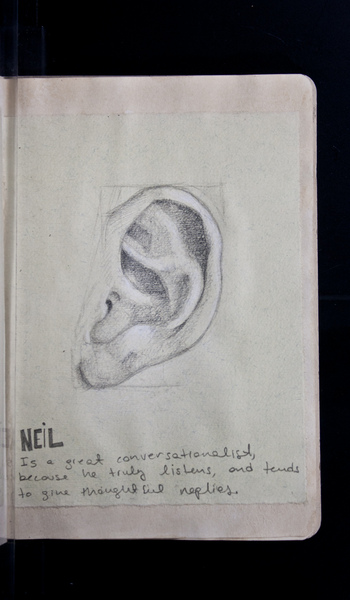 NEiL
Is a great conversationalist,
because he truly listens, and tends
to give thoughtful replies.